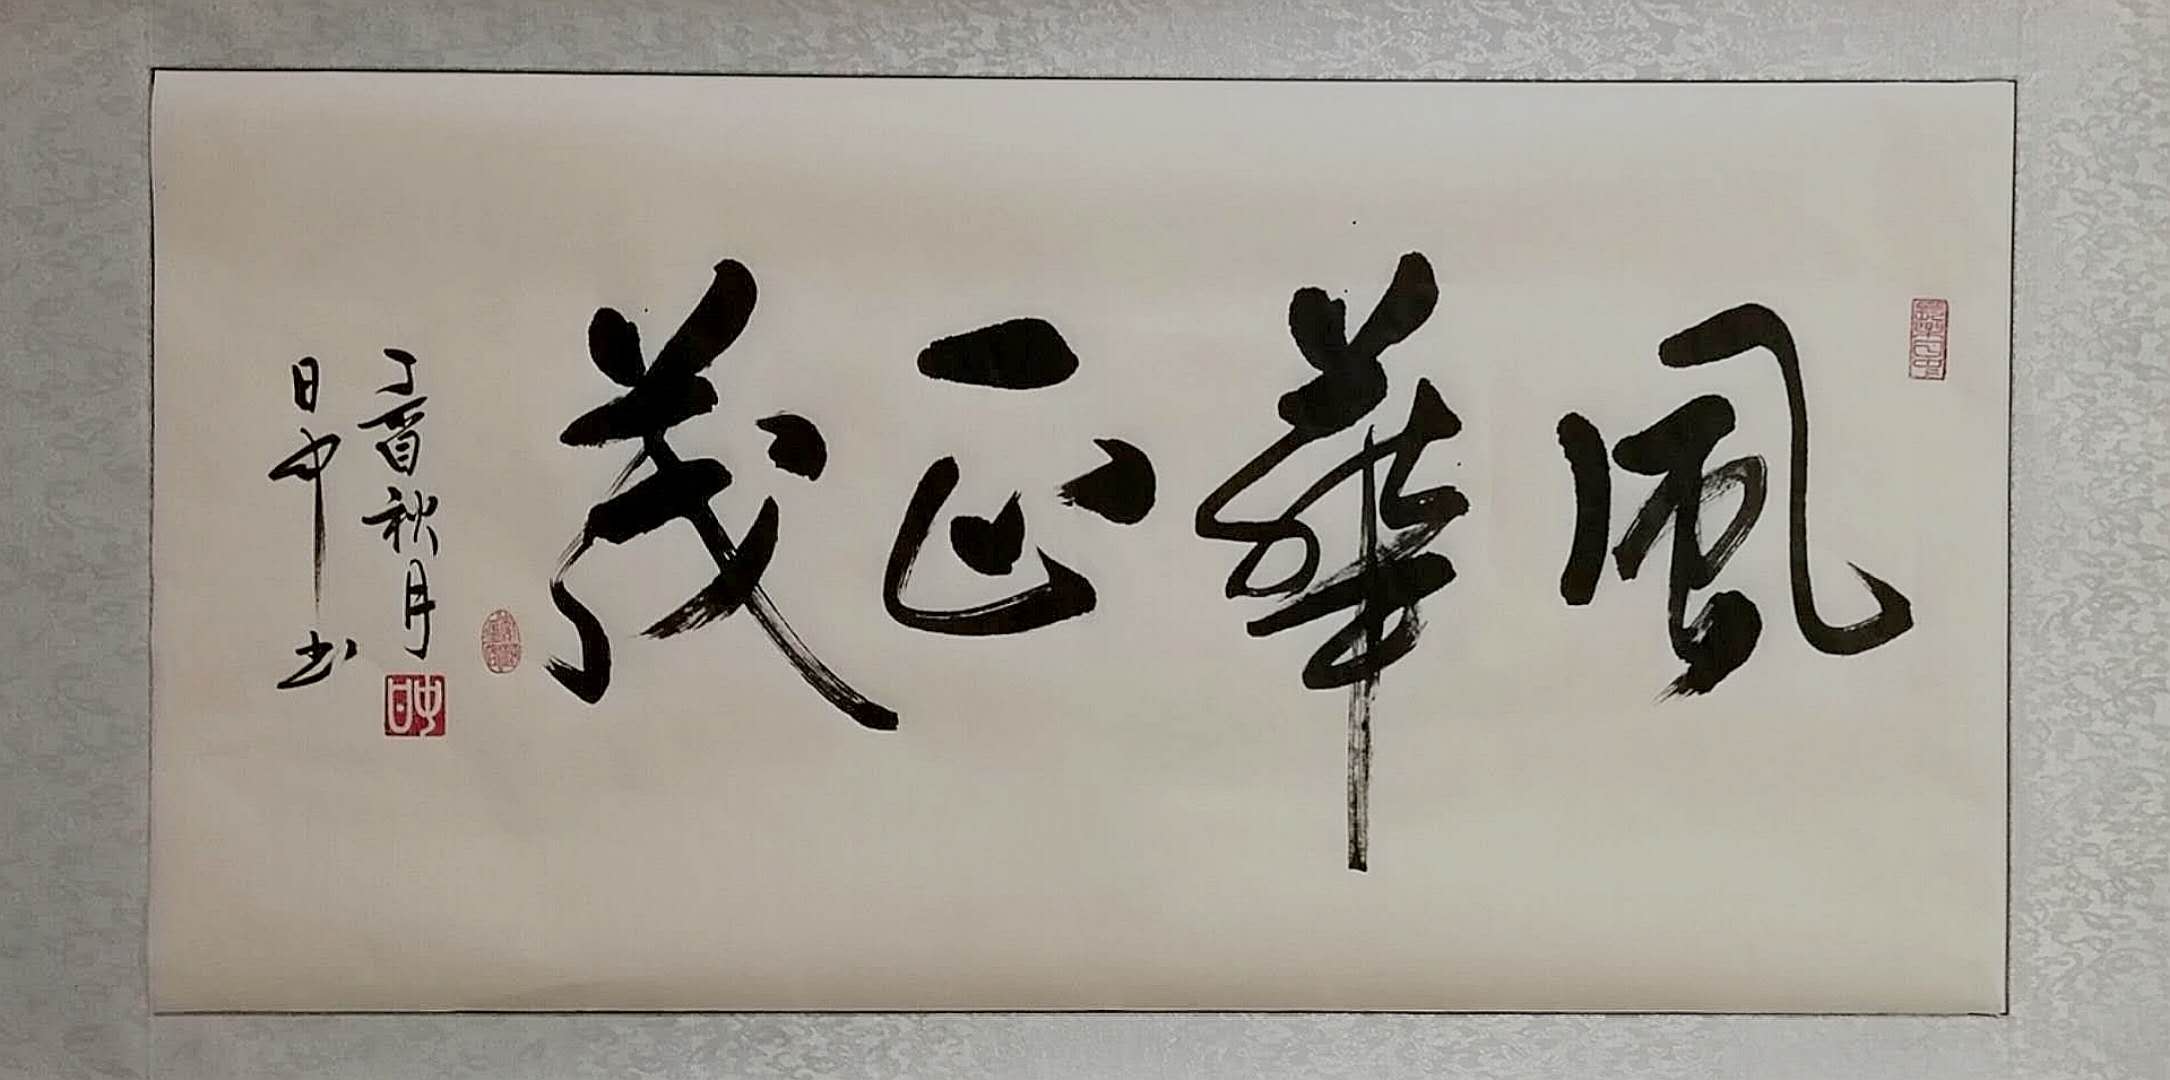 風華正茂
丁酉秋月
日中书